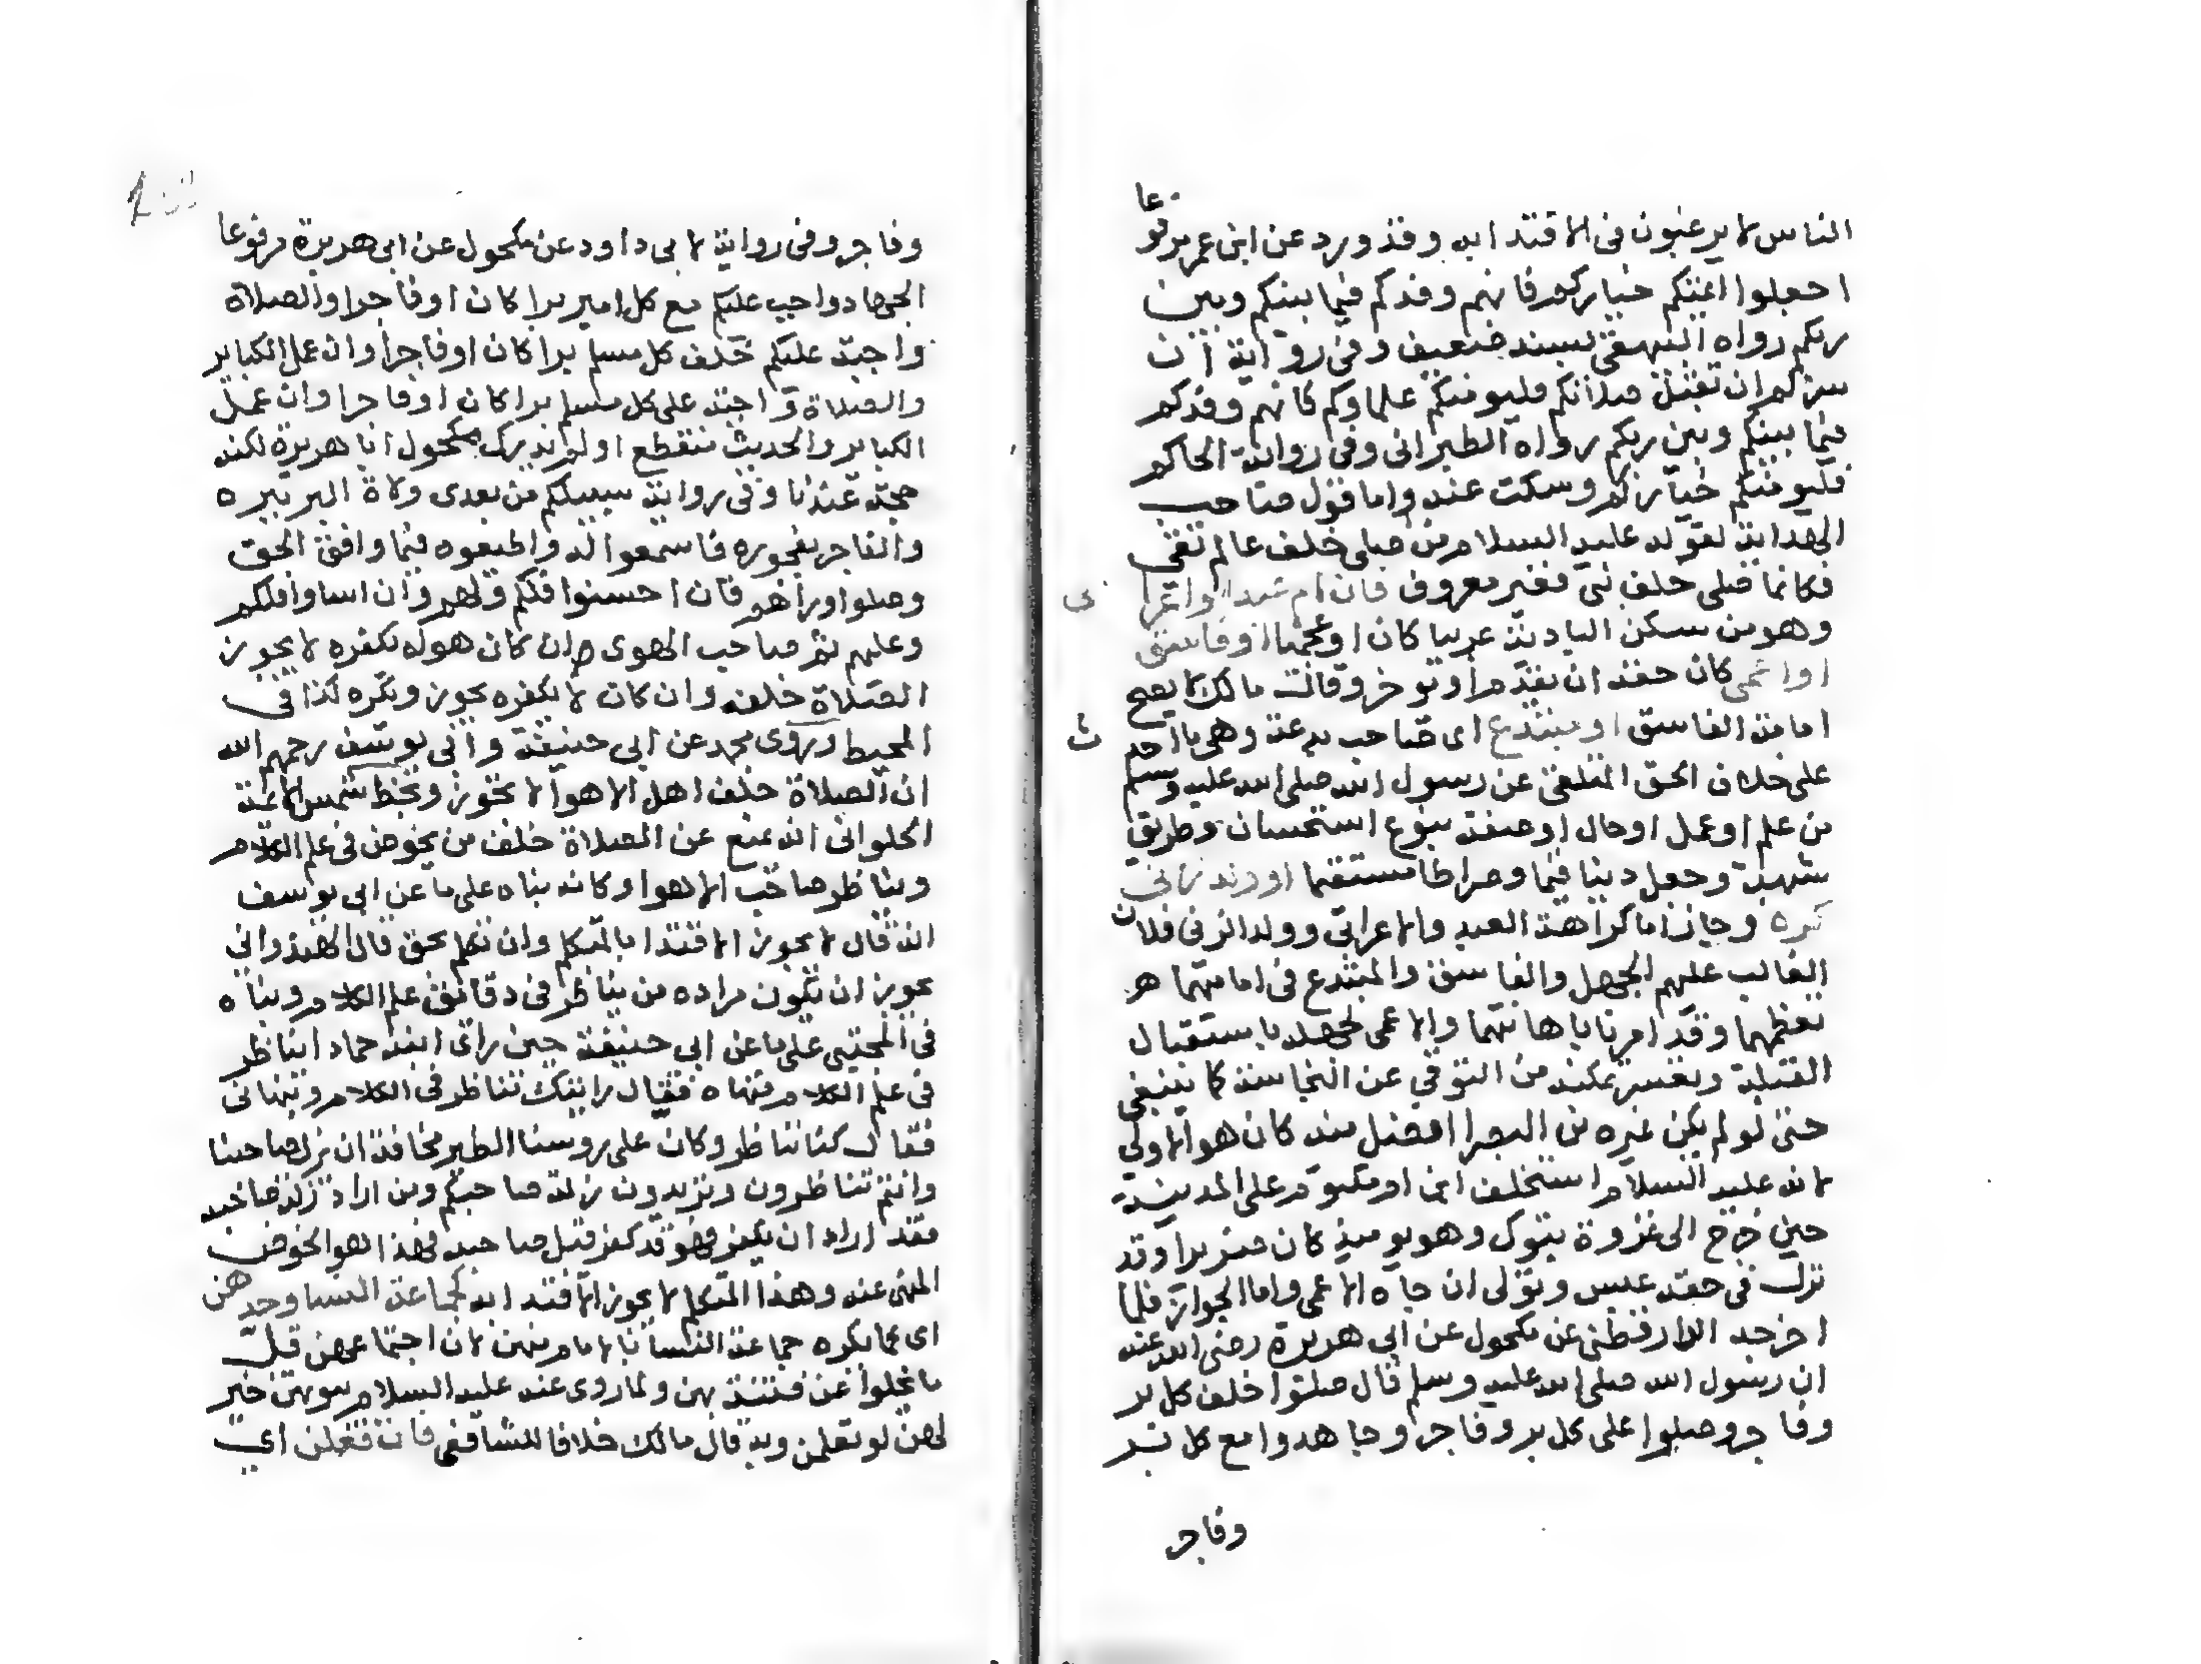 الناس لا يرغبون في الاقتدا به وقد ورد عن ابن عمر مرفوعا
اجعلوا ايمتكم خياركم فانهم وفدكم فيما بينكم وبين
ربكم رواه البيهقي بسند ضعيف وفي رواية ان
سركم ان تقبل صلاتكم فليومكم علماوكم فانهم وفدكم
فيما بينكم وبين ربكم رواه الطبراني وفي رواية الحاكم
فليومكم خياركم وسكت عنه واما قول صاحب
الهداية لقوله عليه السلام من صلى خلف عالم تقي
فكانما صلى خلف نبي فغير معروف فان ام عبد او اعرابي
وهو من سكن البادية عربيا كان او عجميا او فاسق
او اعمى كان حقه ان يقدم او يوخر وقالت مالك لا يصح
امامة الفاسق او مبتدع اى صاحب بدعة وهي ما احدث
على خلاف الحق المتلقى عن رسول الله صلى الله عليه وسلم
من علم او عمل او حال او صفة بنوع استحسان وطريق
شبهة وجعل دينا قيما وصراطا مستقيما او ولد زنا في
كره وجاز اما كراهة العبد والاعرابي وولد الزنى فلان
الغالب عليهم الجهل والفاسق والمبتدع في امامتهما
تعظيمهما وقد امرنا باهانتهما والاعمى لجهله باستقبال
القبلة وتعسر تمكنه من التوقي عن النجاسة كما ينبغي
حتى لو لم يكن غيره من البصرا افضل منه كان هو الاولى
لانه عليه السلام استخلف ابن ام مكتوم على المدينة
حين خرج الى غزوة تبوك وهو يوميذ كان ضريرا وقد
نزل في حقه عبس وتولى ان جاه الاعمى واما الجواز فلما
اخرجه الدارقطني عن مكحول عن ابي هريرة رضي الله عنه
ان رسول الله صلى الله عليه وسلم قال صلوا خلف كل بر
وفاجر وصلوا على كل بر وفاجر وجاهدوا مع كل بر
وفاجر
وفاجر وفي رواية لابي داود عن مكحول عن ابي هريرة مرفوعا
الجهاد واجب عليكم مع كل امير برا كان او فاجرا والصلاة
واجبة عليكم خلف كل مسلم برا كان او فاجرا وان عمل الكباير
والصلاة واجبة على كل مسلم برا كان او فاجرا وان عمل
الكباير والحديث منقطع اولم يدرك مكحول ابا هريرة لكنه
حجة عندنا وفي رواية سيليكم من بعدي ولاة البر ببره
والفاجر بفجوره فاسمعوا له واطيعوه فيما وافق الحق
وصلوا وراهم فان احسنوا فلكم ولهم وان اساوا فلكم
وعليهم ثم صاحب الهوى ان كان هواه يكفره لا يجوز
الصلاة خلفه وان كان لا يكفره يجوز ويكره كذا في
المحيط وروى محمد عن ابي حنيفة وابي يوسف رحمهم الله
ان الصلاة خلف اهل الاهوا لا تجوز وبخط شمس الايمة
الحلواني انه يمنع عن الصلاة خلف من يخوض في علم الكلام
ويناظر صاحب الاهوا وكانه بناه على ما عن ابي يوسف
انه قال لا يجوز الاقتدا بالمتكلم وان تكلم بحق قال الهندواني
يجوز ان يكون مراده من يناظر في دقائق علم الكلام وبناه
في المجتبى على ما عن ابي حنيفة حين راى ابنه حماد ايناظر
في علم الكلام فنهاه فقال رايتك تناظر في الكلام وتنهاني
فقال كنا نناظر وكان على روسنا الطير مخافة ان يزل صاحبنا
وانتم تناظرون وتريدون زلة صاحبكم ومن اراد زلة صاحبه
فقد اراد ان يكفر فهو قد كفر قبل صاحبه فهذا هو الخوض
المنهى عنه وهذا المتكلم لا يجوز الاقتدا به كجماعة النسا وحدهن
اى كما يكره جماعة النسا بامام منهن لان اجتماعهن قل
ما يخلوا عن فتنة بهن ولما روى عنه عليه السلام بيوتهن خير
لهن لو يعلمن وبه قال مالك خلافا للشافعي فان فعلن اي